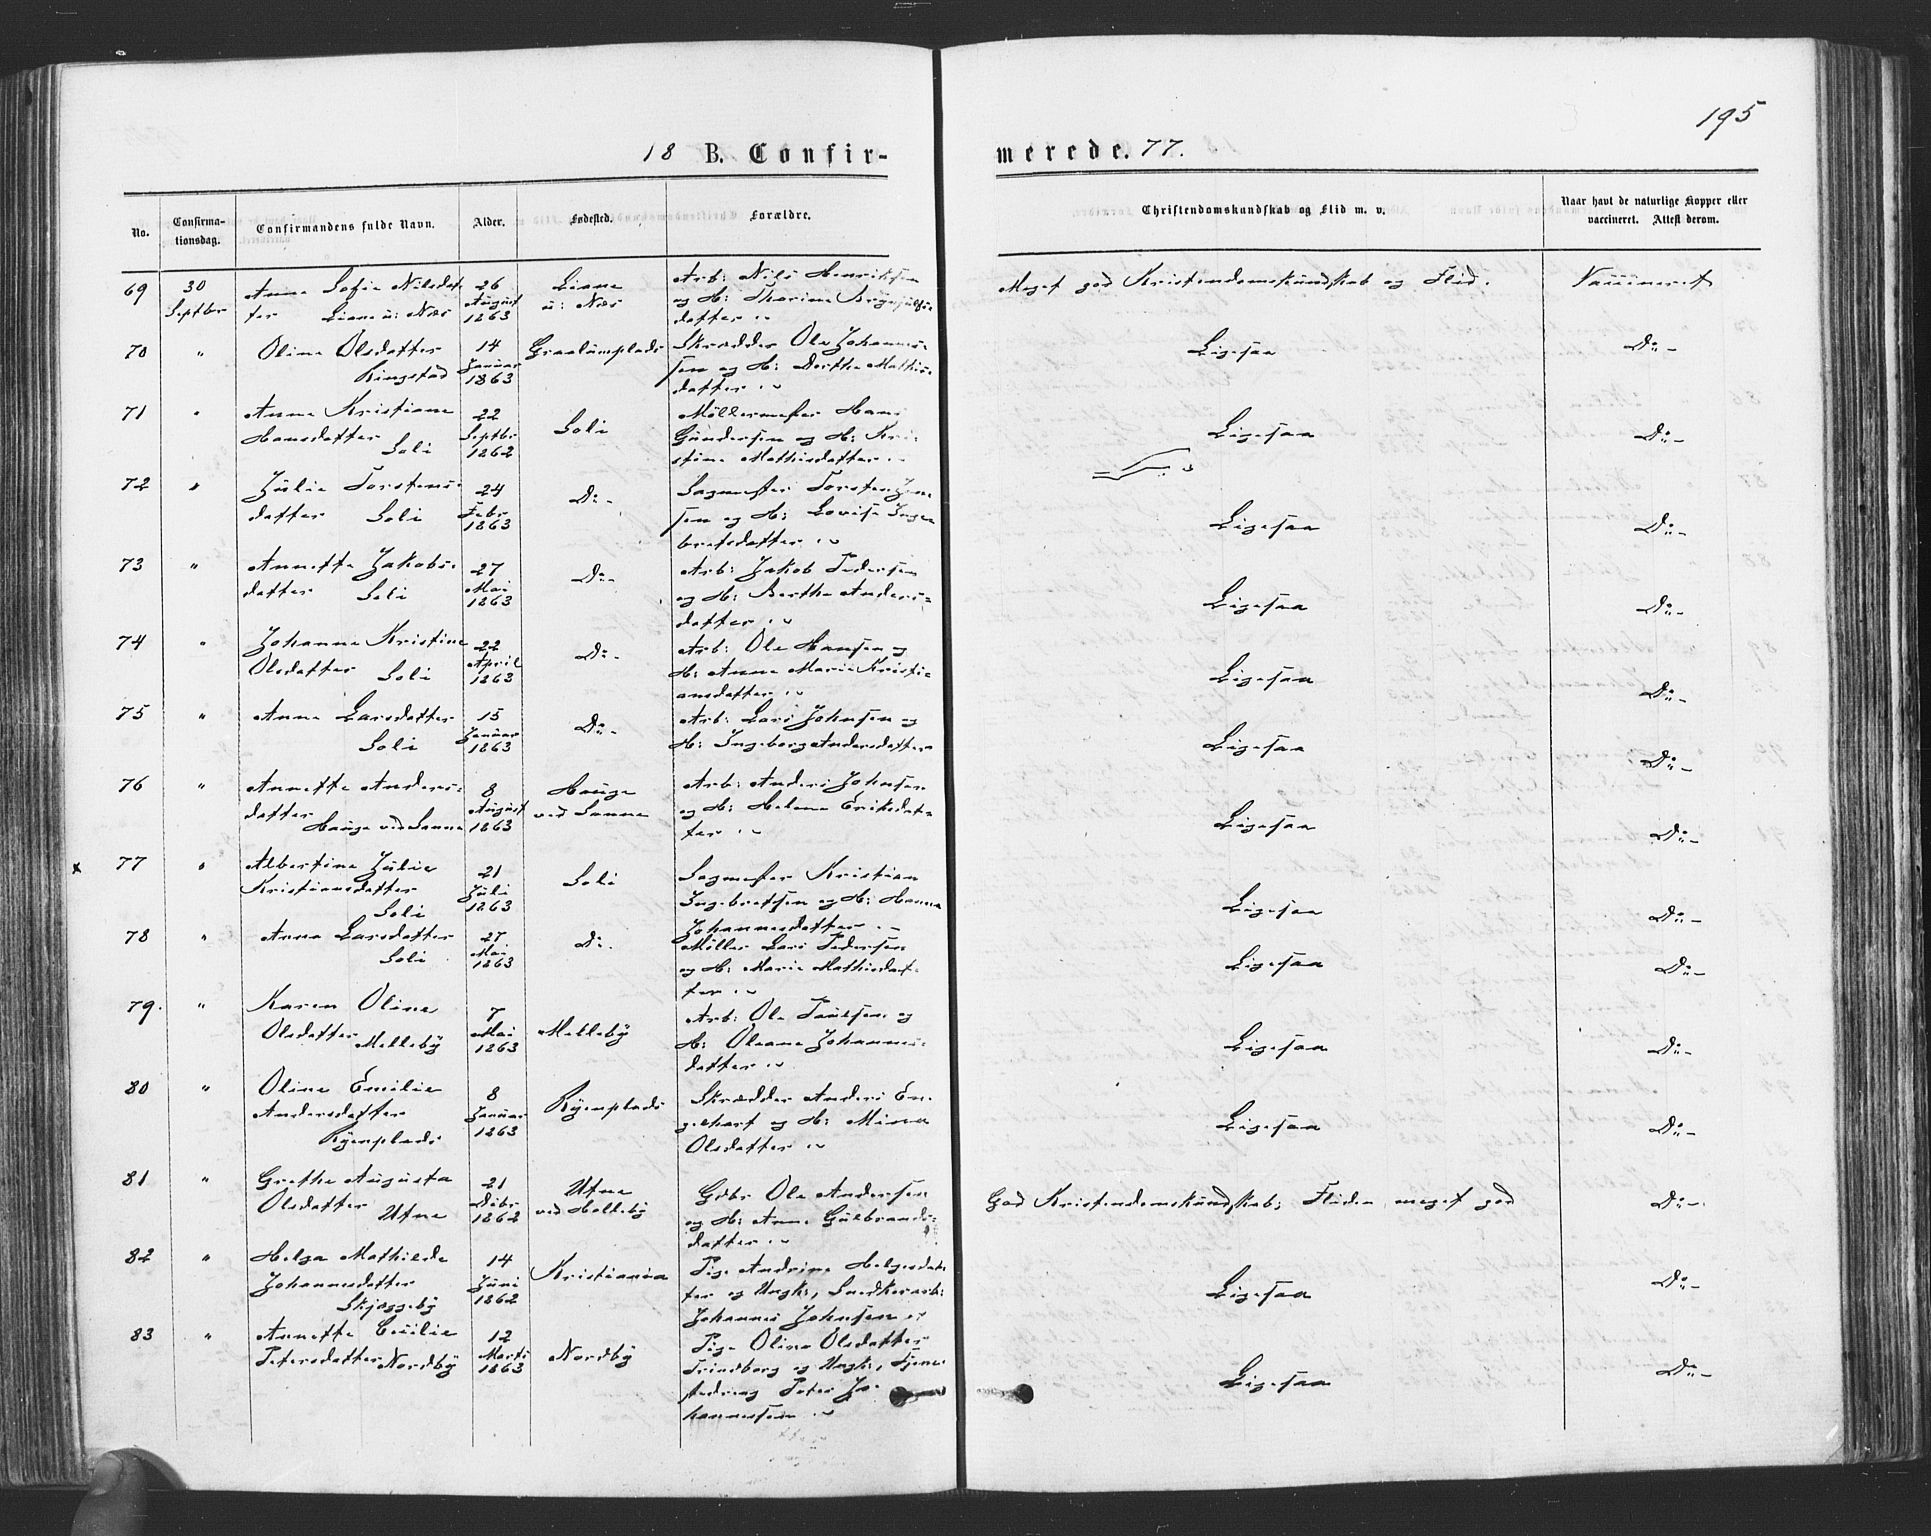 195
18 B. Confir-
merede. 77.
No. Confirma-tionsdag. Confirmandens fulde Navn. Alder. Fødested. Forældre. Christendomskundskab og Flid m. v. Naar havt de naturlige Kopper eller vaccineret. Attest derom.
69 30 Septbr Anne Sofie Nilsdat-
ter Liane u: Næs
26 August 1863
Liane u: Næs
Arb: Nils Henriksen
og H: Thorine
datter
Meget god Kristendomskundskab og Flid. Vaccineret
70 " Oline Olsdatter
Ringstad
14 Januar 1863
Graalumplads
Skrædder Ole Johannes-
sen og H: Dorthe Mathis-
datter
Ligesaa Do -
71 " Anne Kristiane
Hansdatter Soli
22 Septbr 1862
Soli
Møllermester Hans
Gundersen og H: Kri-
stine Mathisdatter
Ligesaa Do -
72 " Julie Torstens-
datter Soli
24 Febr 1863
Do -
Sagmester Torsten Jen
sen og H: Lovise Inge
bretsdatter
Ligesaa Do -
73 " Annette Jakobs-
datter Soli
27 Mai 1863
Do -
Arb: Jakob Pedersen
og H: Berthe Anders-
datter
Ligesaa Do -
74 " Johanne Kristine
Olsdatter Soli
22 April 1863
Do -
Arb: Ole Hansen og
H: Anne Marie Kristi-
ansdatter
Ligesaa Do -
75 " Anne Larsdatter
Soli
15 Januar 1863
Do -
Arb: Lars Johnsen og
H: Ingeborg Andersdatter
Ligesaa Do -
76 " Annette Anders-
datter
Hauge ved Sanne
8 August 1863
Hauge
ved Sanne
Arb: Anders Johnsen
og H: Helene Eriksdat-
ter
Ligesaa Do -
x 77 " Albertine Julie
Kristiansdatter
Soli
21 Juli 1863
Soli
Sagmester Kristian
Ingebretsen og H: Hanna
Johannesdatter
Ligesaa Do -
78 " Anna Larsdatter
Soli
27 Mai 1863
Do.
Møller Lars Pedersen
og H: Marie Mathisdat-
ter
Ligesaa Do -
79. " Karen Oline
Olsdatter Melleby
7 Mai 1863
Melleby
Arb: Ole Paulsen og
H: Oleane Johannes-
datter
Ligesaa Do -
80 " Oline Emilie
Andersdatter
Ryenplads
8 Januar 1863
Ryenplads
Skrædder Anders En-
gehart og H: Mina
Olsdatter
Ligesaa Do -
81 " Grethe Augusta
Olsdatter Utne
21 Dcbr 1862
Utne
ved Holleby
Gdbr Ole Andersen
og H: Anne Gulbrands-
datter
God Kristendomskundskab; Fliden meget god Do -
82 " Helga Mathilde
Johannesdatter
Skjøggeby
14 Juni 1862
Kristiania
Pige Andrine Helgesdat-
ter og Ungk:, Snedkerarb:
Johannes Johnsen
Ligesaa Do -
83 " Annette Cecilie
Petersdatter Nordby
12 Marts 1863
Nordby
Pige Oline Olsdatter
og Ungk:, Tjene-
stedreng Peter Jo-
hannessen
Ligesaa Do -